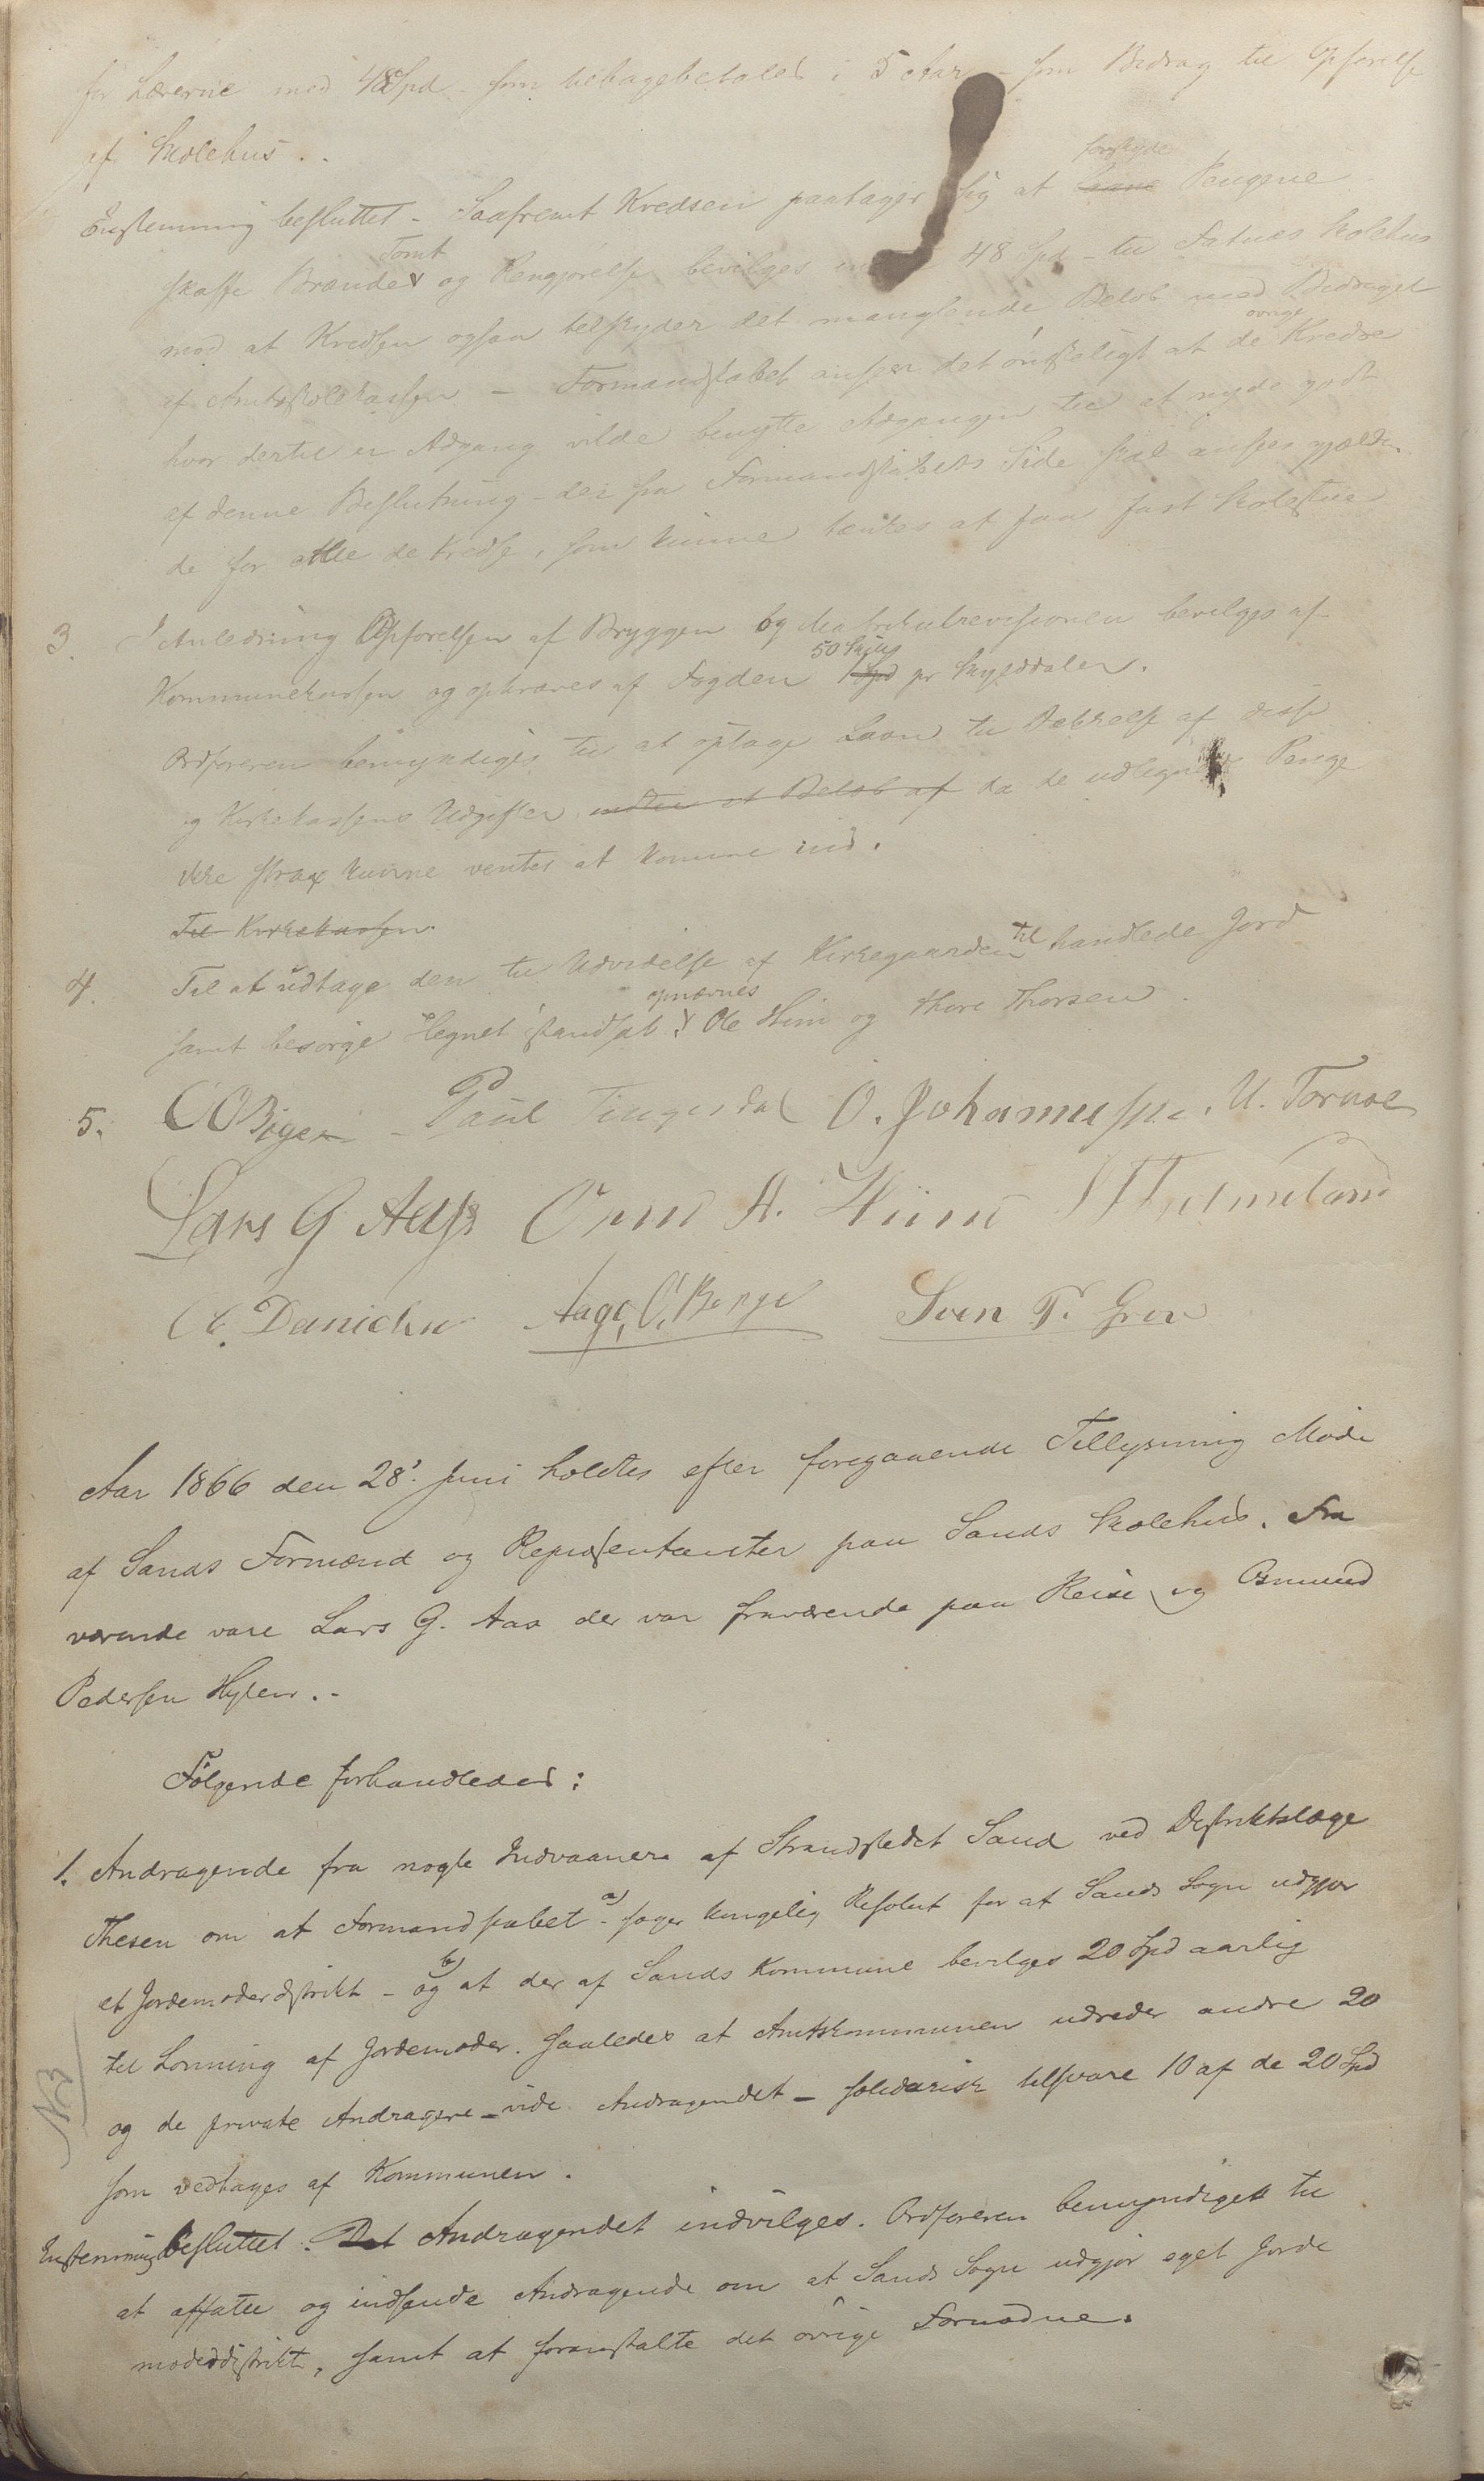 for Lærerne med 48 Spd som tilbagebetales i 5 Aar - som Bidrag til Opførelse
af Skolehus..
Enstemmig besluttet - Saafremt Kredsen paatager sig at forskyde Pengene
skaffe Brænde Tomt og Rengjørelse bevilges 48 Spd - til Fatnes Skolehus
mod at Kredsen ogsaa tilskyder det manglende Beløb med Bidraget
af Amtsskolekassen - Formandskabet anseer det ønskeligt at de øvrige Kredse
hvor dertil er Adgang vilde benytte Adgangen til at nyde godt
af denne Beslutning - der fra Formandskabets Side skal ansees gjælden
de for alle de Kredse, som kunne tænkes at faa fast Skolestue
3. I Anledning Opførelsen af Bryggen og Matrikulrevisionen bevilges af
Kommunekassen og opkræves af Fogden 50 Skill 1 Spd pr Skylddaler.
Ordføreren bemyndiges til at optage Laan til Dækkelse af disse
og Kirkekassens Udgifter da de udlignede Penge
ikke strax kunne ventes at komme ind.
Til Kirkekassen.
4. Til at udtage den til Udvidelse af Kirkegaarden tilhandlede Jord
samt besørge Hegnet istandsat opnævnes Ole Hiim og Thore Thorsen.
5. Paul Tingsdal O. Johannesse. U. Tornoe
Lars G Aas Orm A. Hiim
E. Danielsen Aage O. Berge Sven T. Grov
Aar 1866 den 28'. Juni holdtes efter foregaaende Tillysning Møde
af Sands Formænd og Repræsentanter paa Sands Skolehus. Fra
værende vare Lars G. Aas der var fraværende paa Reise og Osmund
Pedersen Hylen..
Følgende forhandledes:
1. Andragende fra nogle Indvaanere af Strandstedet Sand ved Distriktslæge
Thesen om at Formandskabet - a) søger kongelig Resolut for at Sands Sogn udgjør
et Jordemoderdistrikt - b) og at der af Sands Kommune bevilges 20 Spd aarlig
til Lønning af Jordemoder. saaledes at Amtskommunen udreder andre 20
NB
og de private Andragere - vide Andragendet - solidarisk tilsvare 10 af de 20 Spd
som vedtages af Kommunen.
Enstemmig besluttet. Det Andragendet indvilges. Ordføreren bemyndiget til
at affatte og indsende Andragende om at Sands Sogn udgjør eget Jorde
moderdistrikt, samt at foranstalte det øvrige Fornødne.